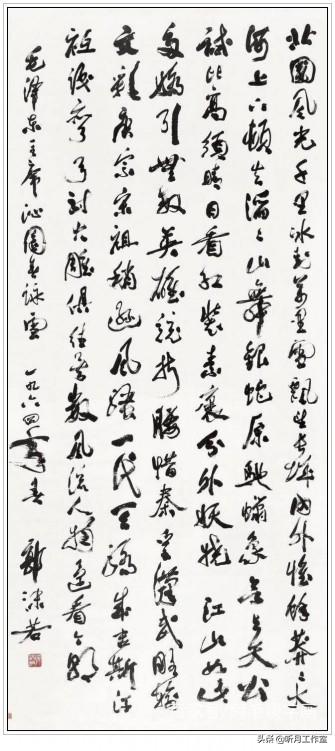 北國風光千里冰封萬里雪飘望长城内外惟馀莽々大
河上下頓失滔々山舞銀蛇原馳蠟象欲与天公
試比高須晴日看紅裝素裹分外妖嬈江山如此
多嬌引無数英雄競折腰惜秦皇漢武略輸
文彩唐宗宋祖稍遜風騷一代天驕成吉斯汗
祗識彎弓射大雕俱往矣数風流人物還看今朝
毛澤东主席沁園春詠雪 一九六四年春 郭沫若
头条 @听月工作室